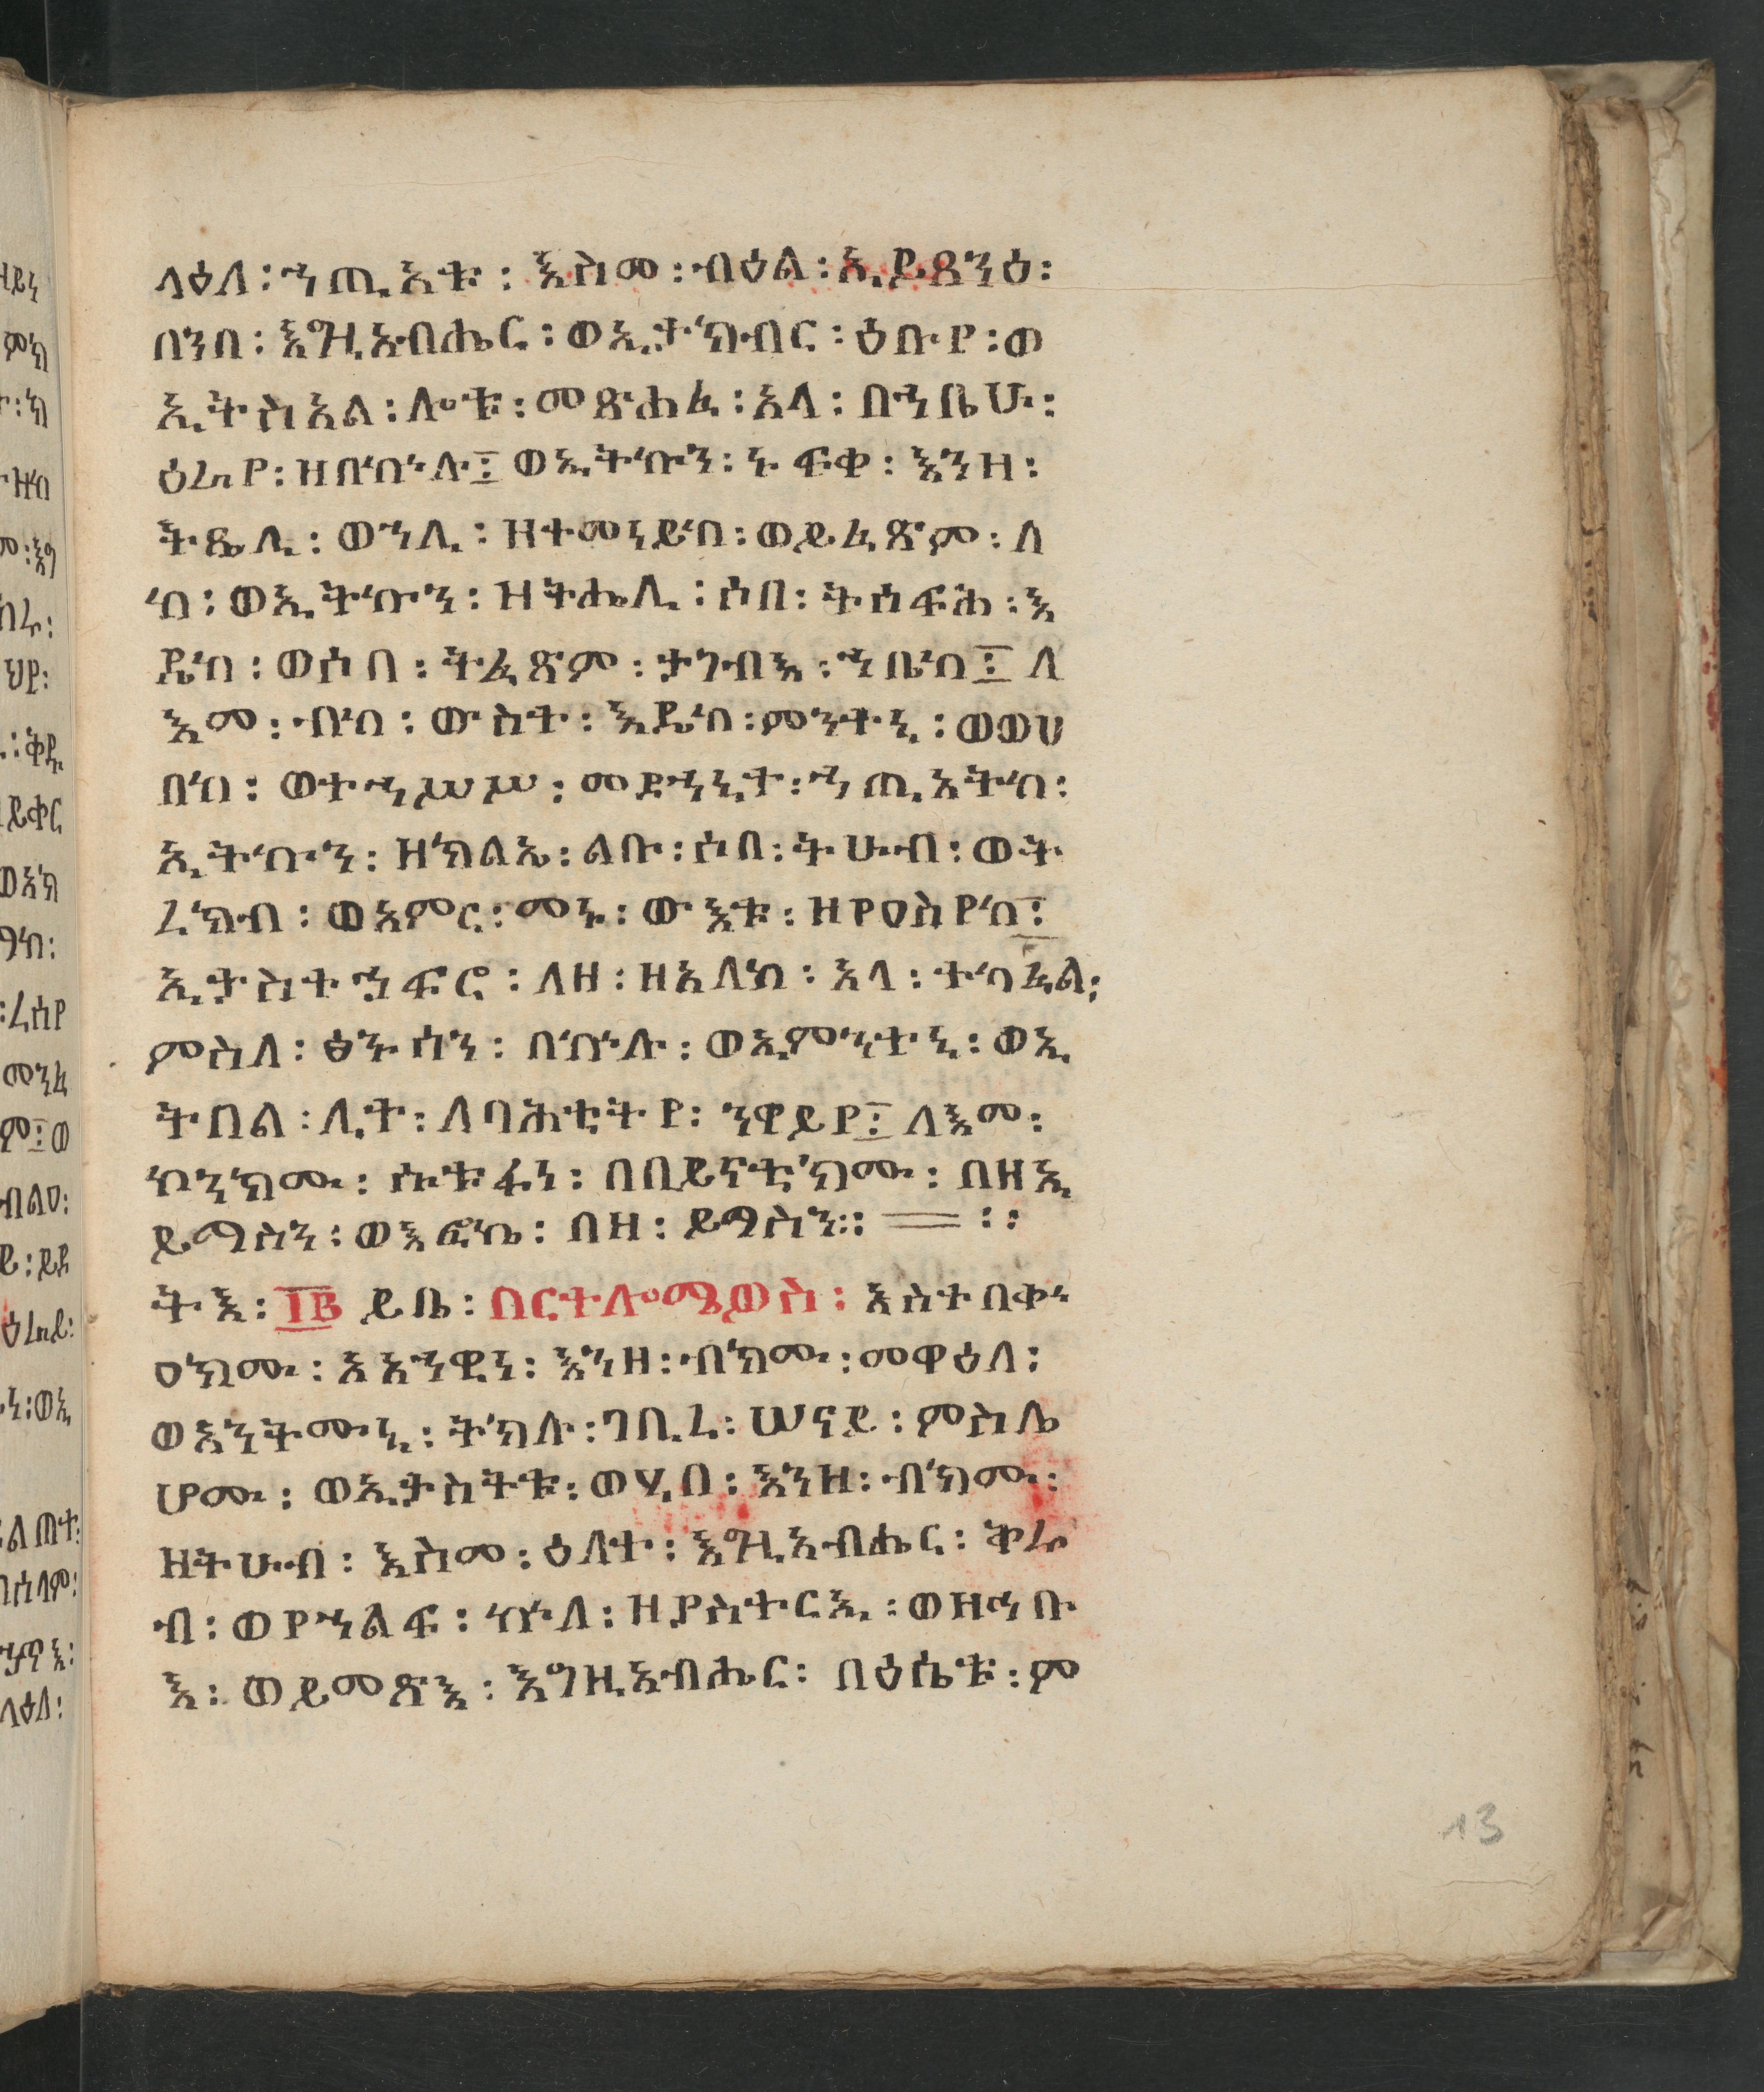 ላዕለ፡ ኀጢአቱ፡ እስመ፡ ብዕል፡ ኢይጸንዕ፡
በንበ፡ እግዚአብሔር፡ ወኢታክብር፡ ዕቡየ፡ ወ
ኢትስአል፡ ሎቱ፡ መጽሐፈ፡ አላ፡ በኀቤሁ፡
ዕሩየ፡ ዘበኵሉ፤ ወኢትኩን፡ ኑፍቀ፡ እንዘ፡
ትጼሊ፡ ወኀሊ፡ ዘተመነይከ፡ ወይፈጽም፡ ለ
ከ፡ ወኢትኩን፡ ዘትሔሊ፡ ሶበ፡ ትሰፍሕ፡ እ
ዴከ፡ ወሶበ፡ ትፈጽም፡ ታገብእ፡ ኀቤከ፤ ለ
እመ፡ ብከ፡ ውስተ፡ እዴከ፡ ምንትኒ፡ ወወሀ
በከ፡ ወተኀሥሥ፡ መድኀኒተ፡ ኀጢአትከ፡
ኢትኩን፡ ዘክልኤ፡ ልቡ፡ ሶበ፡ ትሁብ፡ ወት
ረክብ፡ ወአምር፡ መኑ፡ ውእቱ፡ ዘየዐስየከ፤
ኢታስተኀፍሮ፡ ለዘ፡ ዘአለከ፡ አላ፡ ተካፈል፡
ምስለ፡ ፅኑሰን፡ በኵሉ፡ ወኢምንተኒ፡ ወኢ
ትበል፡ ሊተ፡ ለባሕቲትየ፡ ንዋይየ፤ ለእመ፡
ኮንክሙ፡ ሱቱፋነ፡ በበይናቲክሙ፡ በዘኢ
ይማስን፡ ወእፎኬ፡ በዘ፡ ይማስን።
ትእ፡ ፲፪ ይቤ፡ በርተሎሜዎስ፡ አስተበቍ
ዐክሙ፡ አኀዊነ፡ እንዘ፡ ብክሙ፡ መዋዕለ፡
ወአንትሙኒ፡ ትክሉ፡ ገቢረ፡ ሠናይ፡ ምስሌ
ሆሙ፡ ወኢታስትቱ፡ ወሂበ፡ እንዘ፡ ብክሙ፡
ዘትሁብ፡ እስመ፡ ዕለተ፡ እግዚአብሔር፡ ቅሩ
ብ፡ ወየኀልፍ፡ ኵለ፡ ዘያስተርኢ፡ ወዘኅቡ
እ፡ ወይመጽእ፡ እግዚአብሔር፡ በዕሴቱ፡ ም
13